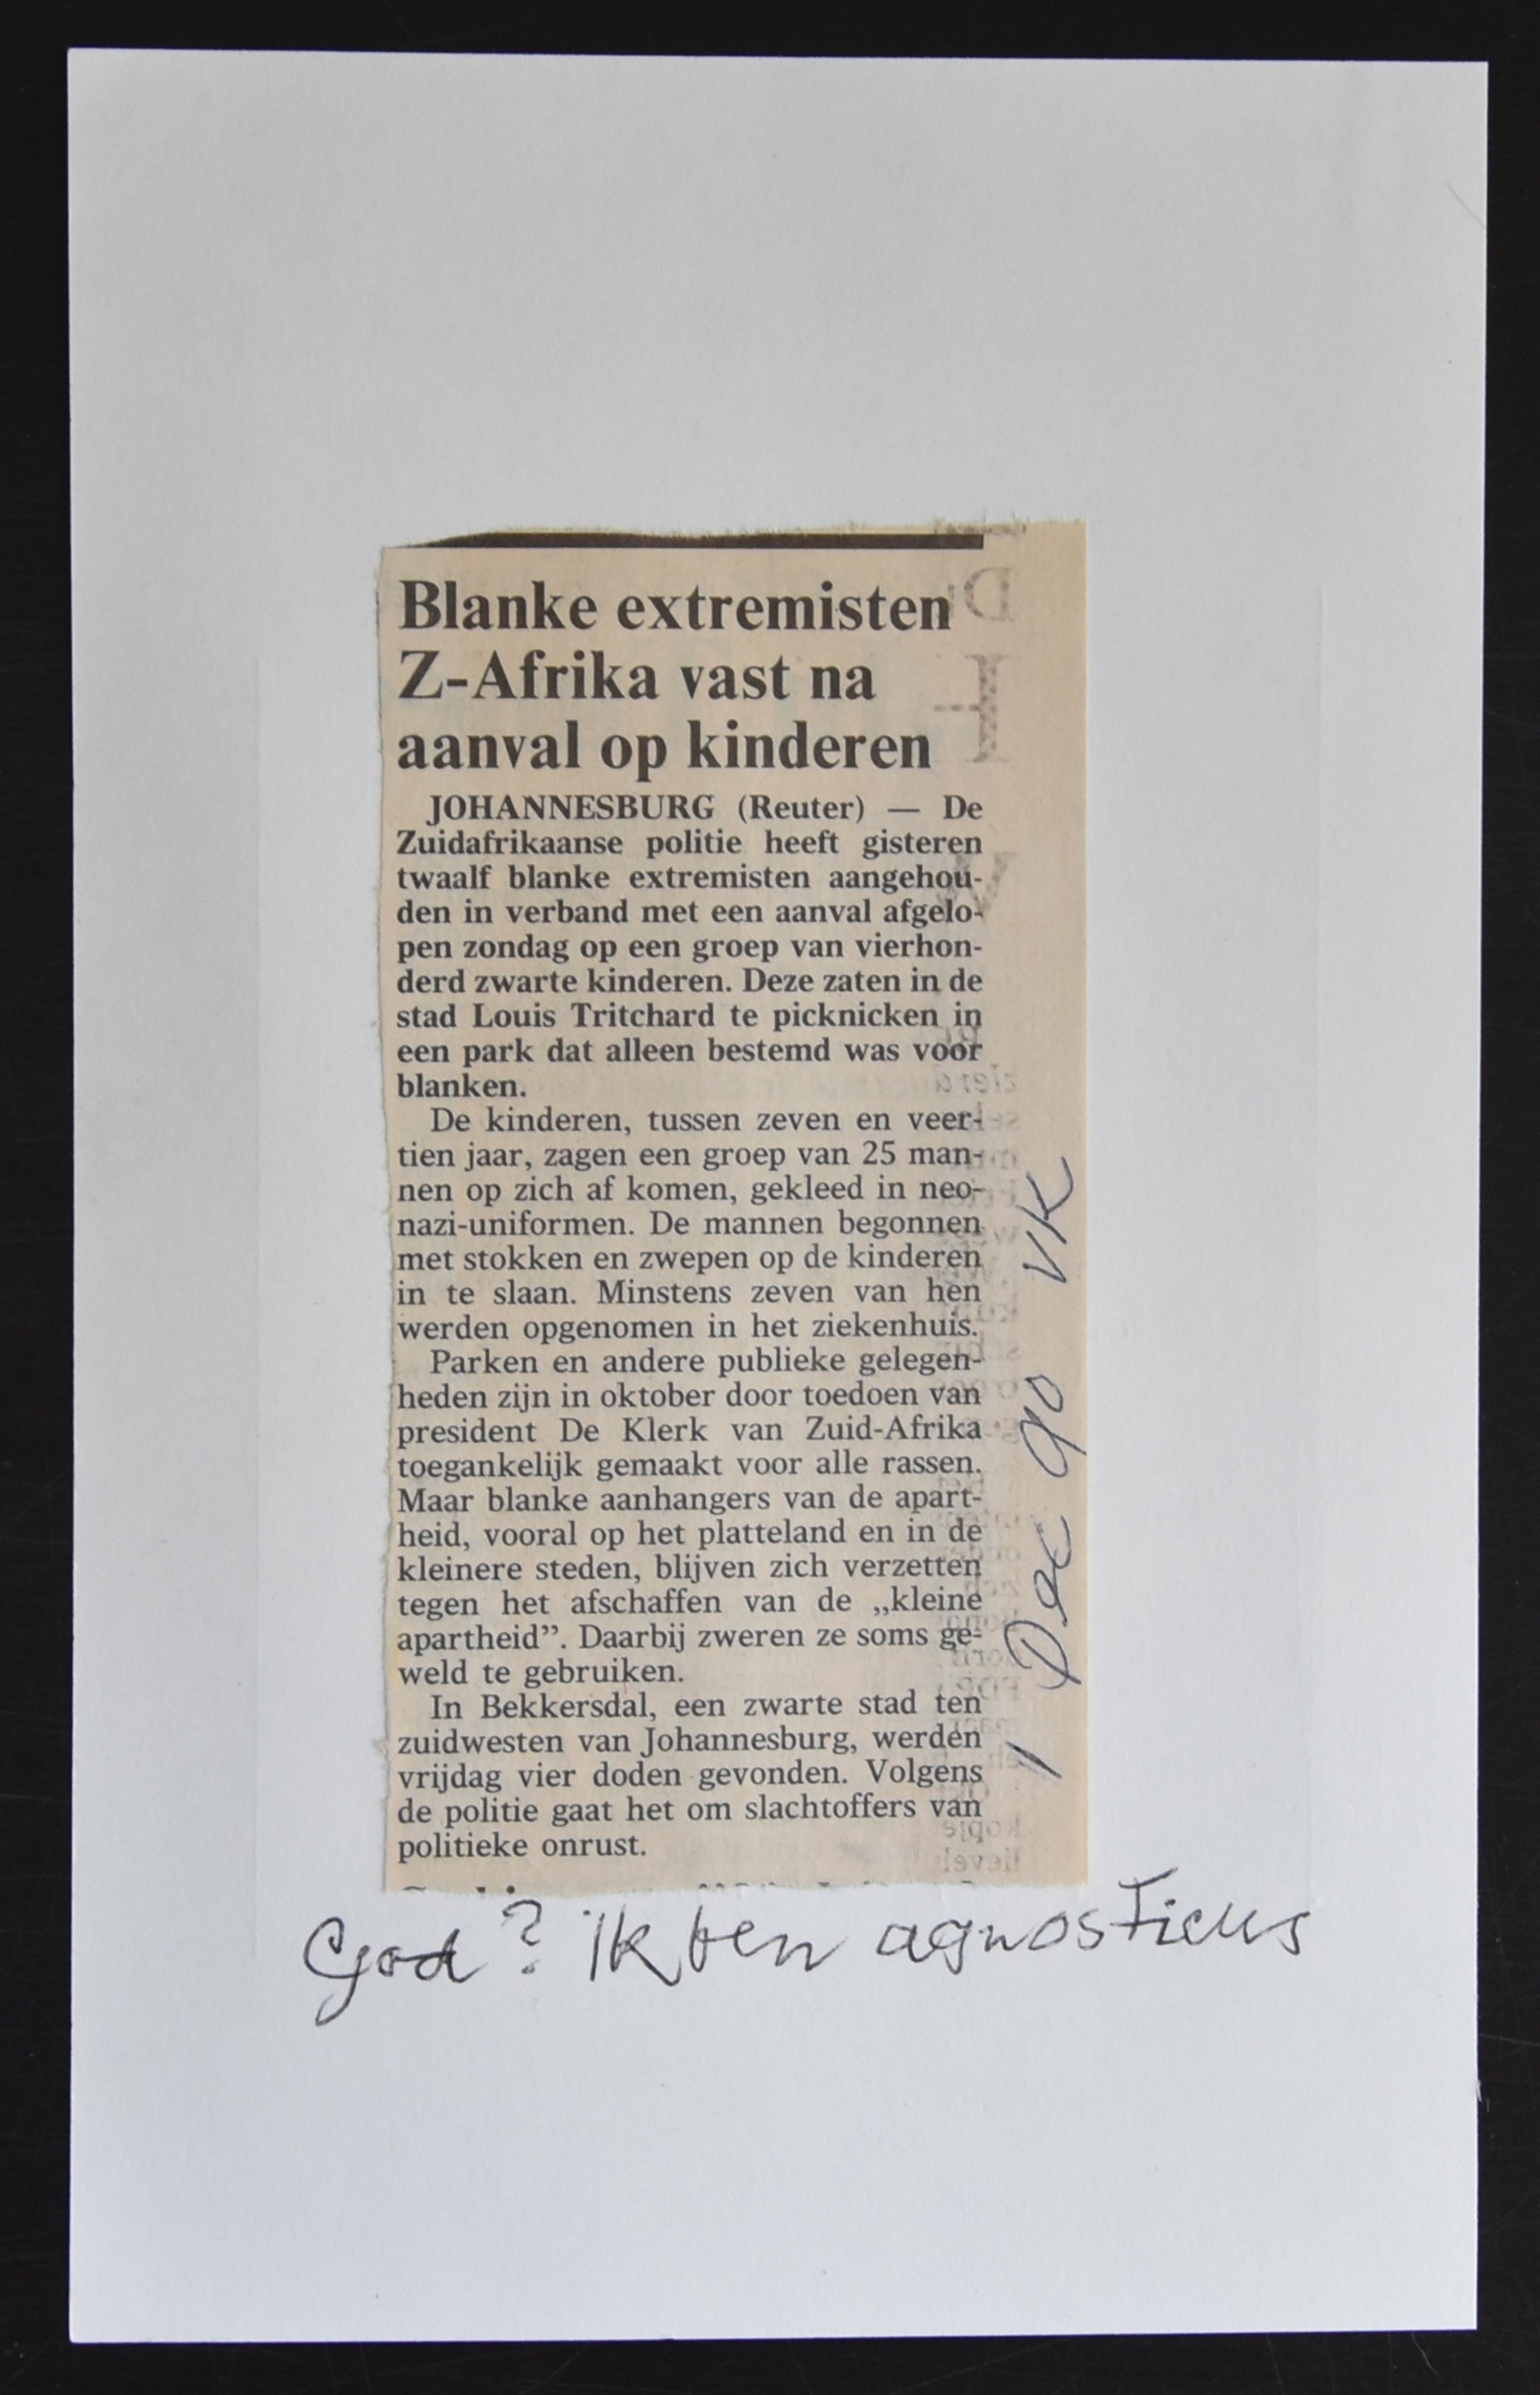 Blanke extremisten
Z-Afrika vast na
aanval op kinderen
JOHANNESBURG (Reuter) — De
Zuidafrikaanse politie heeft gisteren
twaalf blanke extremisten aangehou-
den in verband met een aanval afgelo-
pen zondag op een groep van vierhon-
derd zwarte kinderen. Deze zaten in de
stad Louis Tritchard te picknicken in
een park dat alleen bestemd was voor
blanken.
De kinderen, tussen zeven en veer-
tien jaar, zagen een groep van 25 man-
nen op zich af komen, gekleed in neo-
nazi-uniformen. De mannen begonnen
met stokken en zwepen op de kinderen
in te slaan. Minstens zeven van hen
werden opgenomen in het ziekenhuis.
Parken en andere publieke gelegen-
heden zijn in oktober door toedoen van
president De Klerk van Zuid-Afrika
toegankelijk gemaakt voor alle rassen.
Maar blanke aanhangers van de apart-
heid, vooral op het platteland en in de
kleinere steden, blijven zich verzetten
tegen het afschaffen van de „kleine
apartheid”. Daarbij zweren ze soms ge-
weld te gebruiken.
In Bekkersdal, een zwarte stad ten
zuidwesten van Johannesburg, werden
vrijdag vier doden gevonden. Volgens
de politie gaat het om slachtoffers van
politieke onrust.
1 Dec 90 VK
God? ik ben agnosticus